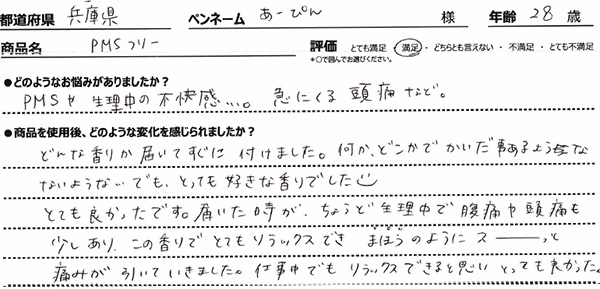 都道府県 兵庫県 ペンネーム あーぴん 様 年齢 28 歳
商品名 PMSフリー 評価 とても満足 ・ 満足 ・ どちらとも言えない ・ 不満足 ・ とても不満足
*○で囲んでお選びください。
●どのようなお悩みがありましたか？
PMSや生理中の不快感…。急にくる頭痛など。
●商品を使用後、どのような変化を感じられましたか？
どんな香りか届いてすぐに付けました。何か、どこかでかいだ事あるような
ないようない でも、とっても好きな香りでした
とても良かったです。届いた時が、ちょうど生理中で腹痛や頭痛も
少しあり、この香りでとてもリラックスでき まほうのようにスーーっと
痛みが引いていきました。仕事中でもリラックスできると思いとっても良かった。